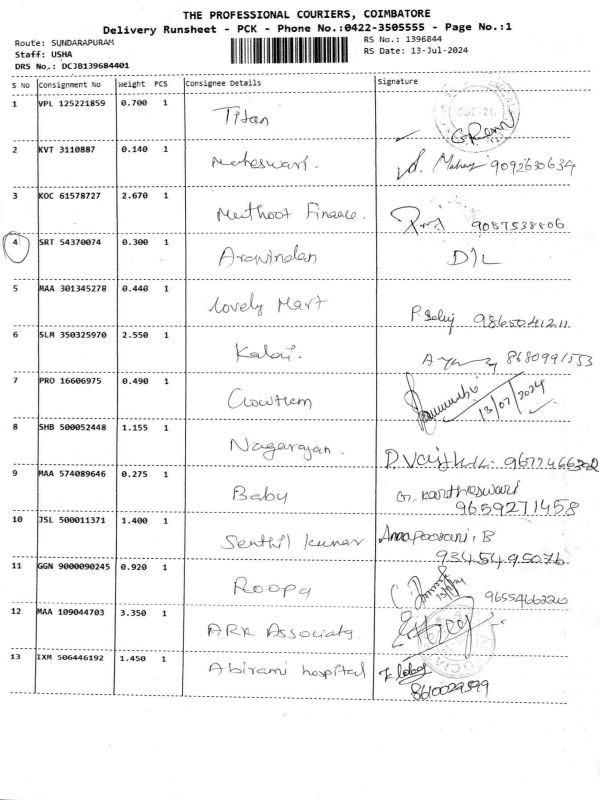 THE PROFESSIONAL COURIERS, COIMBATORE
Delivery Runsheet - PCK - Phone No.:0422-3505555 - Page No.:1
Route: SUNDARAPURAM
RS No.: 1396844
Staff: USHA
RS Date: 13-Jul-2024
DRS No.: DCJB139684401
S No Consignment No Weight PCS Consignee Details Signature
1 VPL 125221859 0.700 1 Titan
2 KVT 3110887 0.140 1 Maheswari. 9092630634
3 KOC 61578727 2.670 1 Muthoot Finance. 9087538806
4 SRT 54370074 0.300 1 Aravindan D/L
5 MAA 301345278 0.440 1 Lovely Mart 9865041211
6 SLM 350325970 2.550 1 Kalai. 8680991553
7 PRO 16606975 0.490 1 13/07/2024
8 SHB 500052448 1.155 1 Nagarajan.
9 MAA 574089646 0.275 1 Baby G. Kartheswari
9659271458
10 JSL 500011371 1.400 1 Senthil Kumar Annapoorani, B
9345495076
11 GGN 9000090245 0.920 1 Roopa 9655466220
12 MAA 109044703 3.350 1 ARK
13 IXM 506446192 1.450 1 Abirami hospital
8610029599